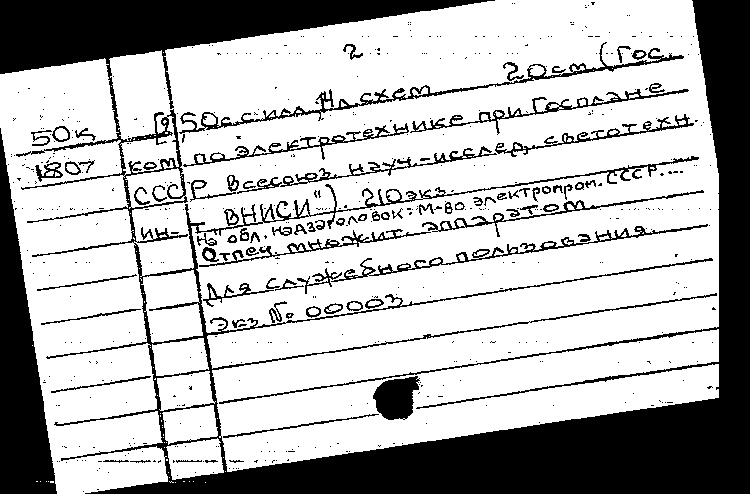 2.
50к [9] 50 с. с илл., 14 л. схем 20 см. (Гос.
1807 ком. по электротехнике при Госплане
СССР. Всесоюз. науч.-исслед. светотехн.
ин-т "ВНИСИ"). 210 экз.
На обл. надзаголовок: М-во электропром. СССР...
Отпеч. множит. аппаратом.
Для служебного пользования.
Экз. № 00003.